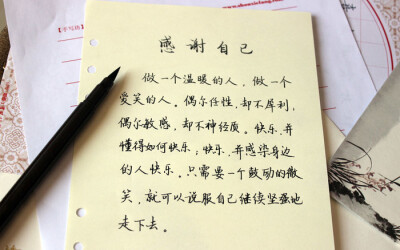 感谢自己
做一个温暖的人，做一个
爱笑的人。偶尔任性，却不犀利，
偶尔敏感，却不神经质。快乐，并
懂得如何快乐；快乐，并感染身边
的人快乐。只需要一个鼓动的微
笑，就可以说服自己继续坚强地
走下去。